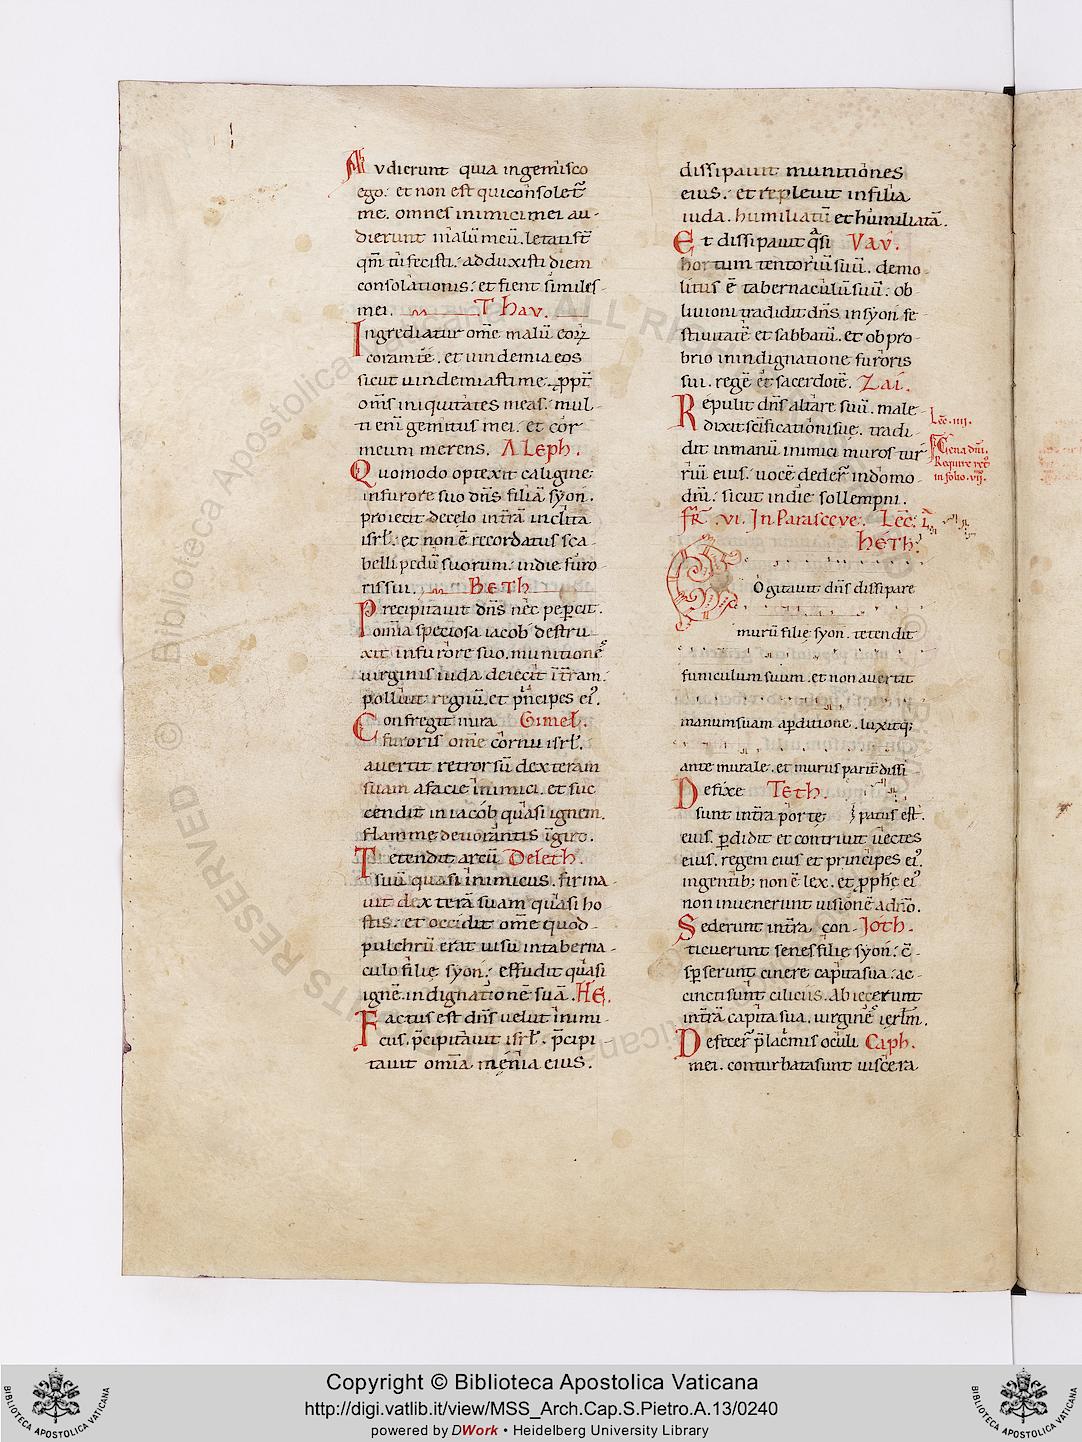 Audierunt quia ingemisco
ego. et non est qui consolet̄
me. omnes inimici mei au-
dierunt malū meū. letati st̄
qm̄ tu fecisti. adduxisti diem
consolationis. et fient similes
mei. Thav.
Ingrediatur om̄e malū eoꝝ
coram te. et vindemia eos
sicut vindemiasti me. ꝓpt̄
om̄s iniquitates meas. mul-
ti eni gemitus mei. et cor
meum merens. Aleph.
Quomodo optexit caligine
in furore suo dn̄s filiā syon.
proiecit de celo in trā inclita
isrł. et non ē recordatus sca-
belli pedū suorum. in die furo-
ris sui. Beth
Precipitavit dn̄s nec peꝑcit.
omīa speciosa iacob. destru-
xit in furore suo. munitione
virginis iuda. deiecit ī trām.
polluit regnū. et pncipes ei.
Confregit in ira Gimel.
furoris om̄e cornu isrł.
avertit retrorsū dexteram
suam a facie inimici. et suc-
cendit in iacob quasi ignem.
flamme devorantis ī giro.
Tetendit arcū Deleth.
suū quasi inimicus. firma-
vit dexterā suam quasi ho-
stis. et occidit om̄e quod
pulchrū erat visu in taberna-
culo filie syon. effudit quasi
ignē indignationē suā. HE.
Factus est dn̄s velut inimi-
cus. p̄cipitavit isrł. p̄cipi-
tavit omīa menia eius.
dissipavit munitiones
eius. et replevit in filia
iuda. humiliatū et humiliatā.
Et dissipavit qsi Vav.
hortum tentoriū suū. demo-
litus ē tabernaculū suū. ob-
livioni tradidit dn̄s in syon fe-
stivitatē et sabbatū. et obpro-
brio in indignatione furoris
sui. regē et sacerdotē. Zai.
Repulit dn̄s altare suū. male-
dixit scificationi sue. tradi-
dit in manū inimici muros tur-
riū eius. vocē deder in domo
dn̄i. sicut in die sollempni.
Lec. iiii.
Cena dn̄i.
Require ret̄
in folio. vii.
fr̄. vi. In Parasceve. Lec̄. i.
Heth.
Cogitavit dn̄s dissipare
murū filie syon. tetendit
funiculum suum. et non avertit
manum suam a ꝑditione. luxitq;
ante murale. et murus parit̄ dissi-
patus est.
Defixe Teth.
sunt in trā porte
eius. ꝑdidit et contrivit vectes
eius. regem eius et principes ei.
in gentib; non ē lex. et ꝓphe ei
non invenerunt visionē a dno.
Sederunt in trā con- Joth.
ticuerunt senes filie syon. c̄-
sꝑserunt cinere capita sua. ac-
cincti sunt ciliciis. abiecerunt
in trā capita sua. virgine ierłm.
Defecer p̄ lacmis oculi Caph.
mei. conturbata sunt viscera
© Biblioteca Apostolica Vaticana
ALL RIGHTS RESERVED
Copyright © Biblioteca Apostolica Vaticana
http://digi.vatlib.it/view/MSS_Arch.Cap.S.Pietro.A.13/0240
powered by DWork • Heidelberg University Library
BIBLIOTECA APOSTOLICA VATICANA
BIBLIOTECA APOSTOLICA VATICANA